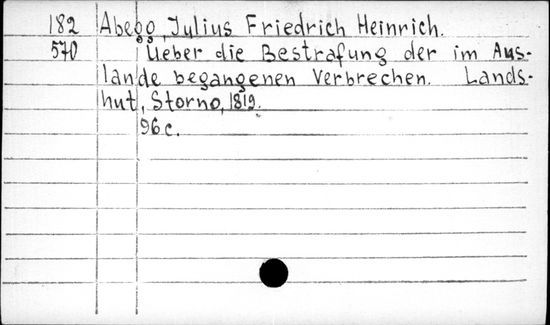 182 Abegg, Julius Friedrich Heinrich.
570 Ueber die Bestrafung der im Aus-
lande begangenen Verbrechen. Lands-
hut, Storno, 1819.
96 c.